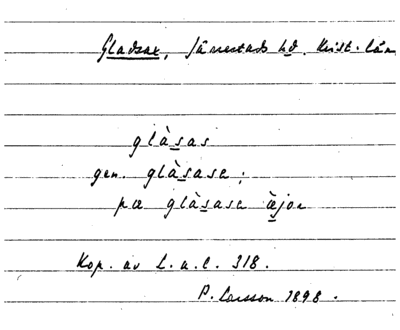 Gladsax, Järrestads hd. Krist. län
glàsas
gen. glàsasa;
pæ glàsasa æ̀jor
Kop. av L.u.l. 318.
P. Larsson 1898.